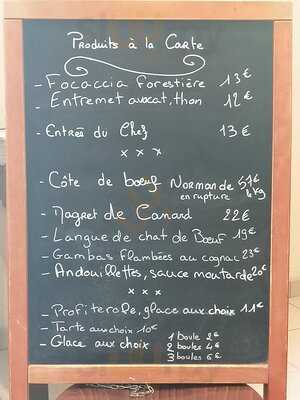 Produits à la Carte
- Focaccia forestière 13€
- Entremet avocat, thon 12€
- Entrée du Chef 13€
x x x
- Côte de bœuf Normande 51€
en rupture kg
- Magret de Canard 22€
- Langue de chat de Bœuf 19€
- Gambas flambées au cognac 23€
- Andouillettes, sauce moutarde 20€
x x x
- Profiterole, glace aux choix 11€
- Tarte aux choix 10€
- Glace aux choix 1 boule 2€
2 boules 4€
3 boules 6€